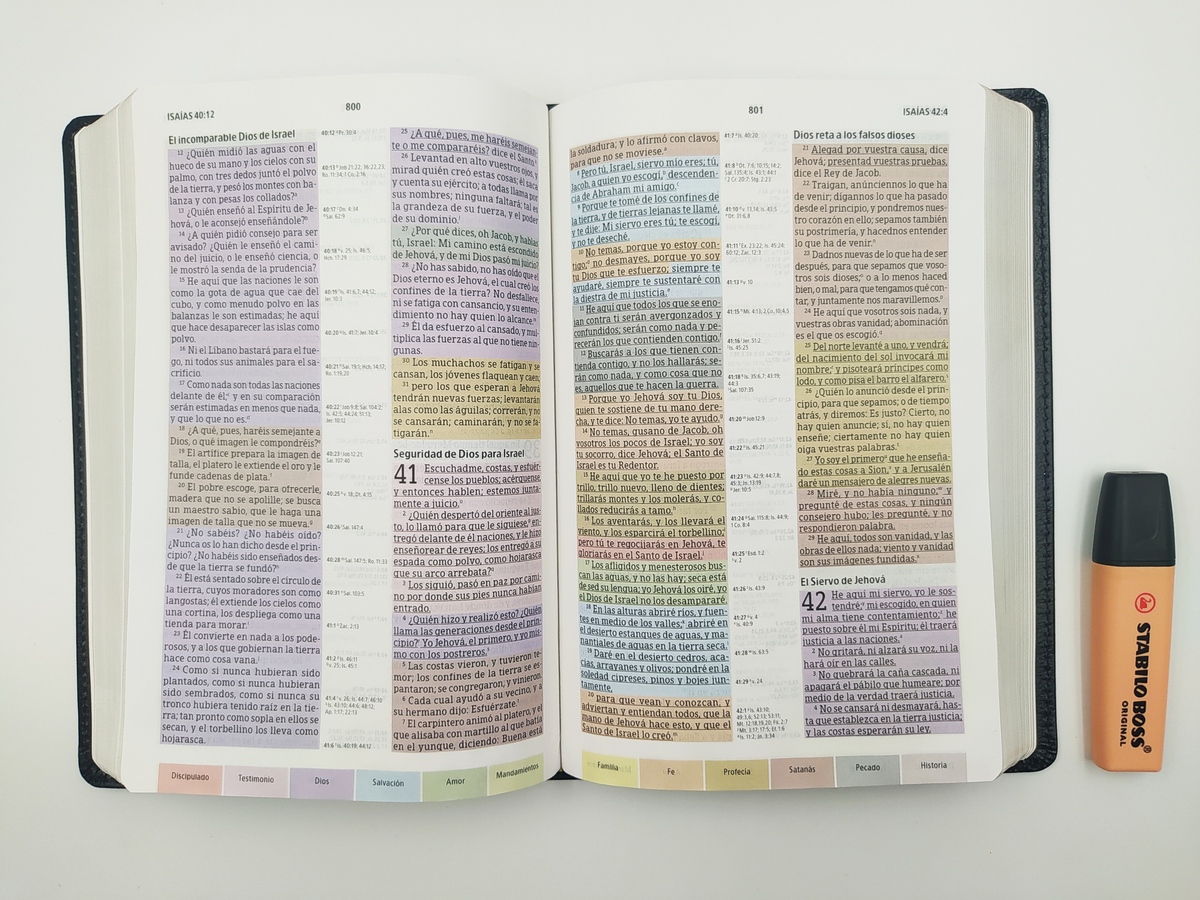 ISAÍAS 40:12
800
El incomparable Dios de Israel
12 ¿Quién midió las aguas con el
hueco de su mano y los cielos con su
palmo, con tres dedos juntó el polvo
de la tierra, y pesó los montes con ba-
lanza y con pesas los collados?
13 ¿Quién enseñó al Espíritu de Je-
hová, o le aconsejó enseñándole?
14 ¿A quién pidió consejo para ser
avisado? ¿Quién le enseñó el cami-
no del juicio, o le enseñó ciencia, o
le mostró la senda de la prudencia?
15 He aquí que las naciones le son
como la gota de agua que cae del
cubo, y como menudo polvo en las
balanzas le son estimadas; he aquí
que hace desaparecer las islas como
polvo.
16 Ni el Líbano bastará para el fue-
go, ni todos sus animales para el sa-
crificio.
17 Como nada son todas las naciones
delante de él; y en su comparación
serán estimadas en menos que nada,
y que lo que no es.
18 ¿A qué, pues, haréis semejante a
Dios, o qué imagen le compondréis?
19 El artífice prepara la imagen de
talla, el platero le extiende el oro y le
funde cadenas de plata.
20 El pobre escoge, para ofrecerle,
madera que no se apolille; se busca
un maestro sabio, que le haga una
imagen de talla que no se mueva.
21 ¿No sabéis? ¿No habéis oído?
¿Nunca os lo han dicho desde el prin-
cipio? ¿No habéis sido enseñados des-
de que la tierra se fundó?
22 Él está sentado sobre el círculo de
la tierra, cuyos moradores son como
langostas; él extiende los cielos como
una cortina, los despliega como una
tienda para morar.
23 Él convierte en nada a los pode-
rosos, y a los que gobiernan la tierra
hace como cosa vana.
24 Como si nunca hubieran sido
plantados, como si nunca hubieran
sido sembrados, como si nunca su
tronco hubiera tenido raíz en la tie-
rra; tan pronto como sopla en ellos se
secan, y el torbellino los lleva como
hojarasca.
25 ¿A qué, pues, me haréis semejan-
te o me compararéis? dice el Santo.
26 Levantad en alto vuestros ojos, y
mirad quién creó estas cosas; él saca
y cuenta su ejército; a todas llama por
sus nombres; ninguna faltará; tal es
la grandeza de su fuerza, y el poder
de su dominio.
27 ¿Por qué dices, oh Jacob, y hablas
tú, Israel: Mi camino está escondido
de Jehová, y de mi Dios pasó mi juicio?
28 ¿No has sabido, no has oído que el
Dios eterno es Jehová, el cual creó los
confines de la tierra? No desfallece,
ni se fatiga con cansancio, y su enten-
dimiento no hay quien lo alcance.
29 Él da esfuerzo al cansado, y mul-
tiplica las fuerzas al que no tiene nin-
gunas.
30 Los muchachos se fatigan y se
cansan, los jóvenes flaquean y caen;
31 pero los que esperan a Jehová
tendrán nuevas fuerzas; levantarán
alas como las águilas; correrán, y no
se cansarán; caminarán, y no se fa-
tigarán.
Seguridad de Dios para Israel
41 Escuchadme, costas, y esfuér-
cense los pueblos; acérquense,
y entonces hablen; estemos junta-
mente a juicio.
2 ¿Quién despertó del oriente al jus-
to, lo llamó para que le siguiese, en-
tregó delante de él naciones, y le hizo
enseñorear de reyes; los entregó a su
espada como polvo, como hojarasca
que su arco arrebata?
3 Los siguió, pasó en paz por cami-
no por donde sus pies nunca habían
entrado.
4 ¿Quién hizo y realizó esto? ¿Quién
llama las generaciones desde el prin-
cipio? Yo Jehová, el primero, y yo mis-
mo con los postreros.
5 Las costas vieron, y tuvieron te-
mor; los confines de la tierra se es-
pantaron; se congregaron, y vinieron.
6 Cada cual ayudó a su vecino, y a
su hermano dijo: Esfuérzate.
7 El carpintero animó al platero, y el
que alisaba con martillo al que batía
en el yunque, diciendo: Buena está
801
ISAÍAS 42:4
la soldadura, y lo afirmó con clavos,
para que no se moviese.
8 Pero tú, Israel, siervo mío eres; tú,
Jacob, a quien yo escogí, descenden-
cia de Abraham mi amigo.
9 Porque te tomé de los confines de
la tierra, y de tierras lejanas te llamé,
y te dije: Mi siervo eres tú; te escogí,
y no te deseché.
10 No temas, porque yo estoy con-
tigo; no desmayes, porque yo soy
tu Dios que te esfuerzo; siempre te
ayudaré, siempre te sustentaré con
la diestra de mi justicia.
11 He aquí que todos los que se eno-
jan contra ti serán avergonzados y
confundidos; serán como nada y pe-
recerán los que contienden contigo.
12 Buscarás a los que tienen con-
tienda contigo, y no los hallarás; se-
rán como nada, y como cosa que no
es, aquellos que te hacen la guerra.
13 Porque yo Jehová soy tu Dios,
quien te sostiene de tu mano dere-
cha, y te dice: No temas, yo te ayudo.
14 No temas, gusano de Jacob, oh
vosotros los pocos de Israel; yo soy
tu socorro, dice Jehová; el Santo de
Israel es tu Redentor.
15 He aquí que yo te he puesto por
trillo, trillo nuevo, lleno de dientes;
trillarás montes y los molerás, y co-
llados reducirás a tamo.
16 Los aventarás, y los llevará el
viento, y los esparcirá el torbellino;
pero tú te regocijarás en Jehová, te
gloriarás en el Santo de Israel.
17 Los afligidos y menesterosos bus-
can las aguas, y no las hay; seca está
de sed su lengua; yo Jehová los oiré, yo
el Dios de Israel no los desampararé.
18 En las alturas abriré ríos, y fuen-
tes en medio de los valles; abriré en
el desierto estanques de aguas, y ma-
nantiales de aguas en la tierra seca.
19 Daré en el desierto cedros, aca-
cias, arrayanes y olivos; pondré en la
soledad cipreses, pinos y bojes jun-
tamente,
20 para que vean y conozcan, y
adviertan y entiendan todos, que la
mano de Jehová hace esto, y que el
Santo de Israel lo creó.
Dios reta a los falsos dioses
21 Alegad por vuestra causa, dice
Jehová; presentad vuestras pruebas,
dice el Rey de Jacob.
22 Traigan, anúnciennos lo que ha
de venir; dígannos lo que ha pasado
desde el principio, y pondremos nues-
tro corazón en ello; sepamos también
su postrimería, y hacednos entender
lo que ha de venir.
23 Dadnos nuevas de lo que ha de ser
después, para que sepamos que voso-
tros sois dioses; o a lo menos haced
bien, o mal, para que tengamos qué con-
tar, y juntamente nos maravillemos.
24 He aquí que vosotros sois nada, y
vuestras obras vanidad; abominación
es el que os escogió.
25 Del norte levanté a uno, y vendrá;
del nacimiento del sol invocará mi
nombre; y pisoteará príncipes como
lodo, y como pisa el barro el alfarero.
26 ¿Quién lo anunció desde el prin-
cipio, para que sepamos; o de tiempo
atrás, y diremos: Es justo? Cierto, no
hay quien anuncie; sí, no hay quien
enseñe; ciertamente no hay quien
oiga vuestras palabras.
27 Yo soy el primero que he enseña-
do estas cosas a Sion, y a Jerusalén
daré un mensajero de alegres nuevas.
28 Miré, y no había ninguno; y
pregunté de estas cosas, y ningún
consejero hubo; les pregunté, y no
respondieron palabra.
29 He aquí, todos son vanidad, y las
obras de ellos nada; viento y vanidad
son sus imágenes fundidas.
El Siervo de Jehová
42 He aquí mi siervo, yo le sos-
tendré; mi escogido, en quien
mi alma tiene contentamiento; he
puesto sobre él mi Espíritu; él traerá
justicia a las naciones.
2 No gritará, ni alzará su voz, ni la
hará oír en las calles.
3 No quebrará la caña cascada, ni
apagará el pábilo que humeare; por
medio de la verdad traerá justicia.
4 No se cansará ni desmayará, has-
ta que establezca en la tierra justicia;
y las costas esperarán su ley.
Discipulado
Testimonio
Dios
Salvación
Amor
Mandamientos
Familia
Fe
Profecía
Satanás
Pecado
Historia
STABILO BOSS®
ORIGINAL